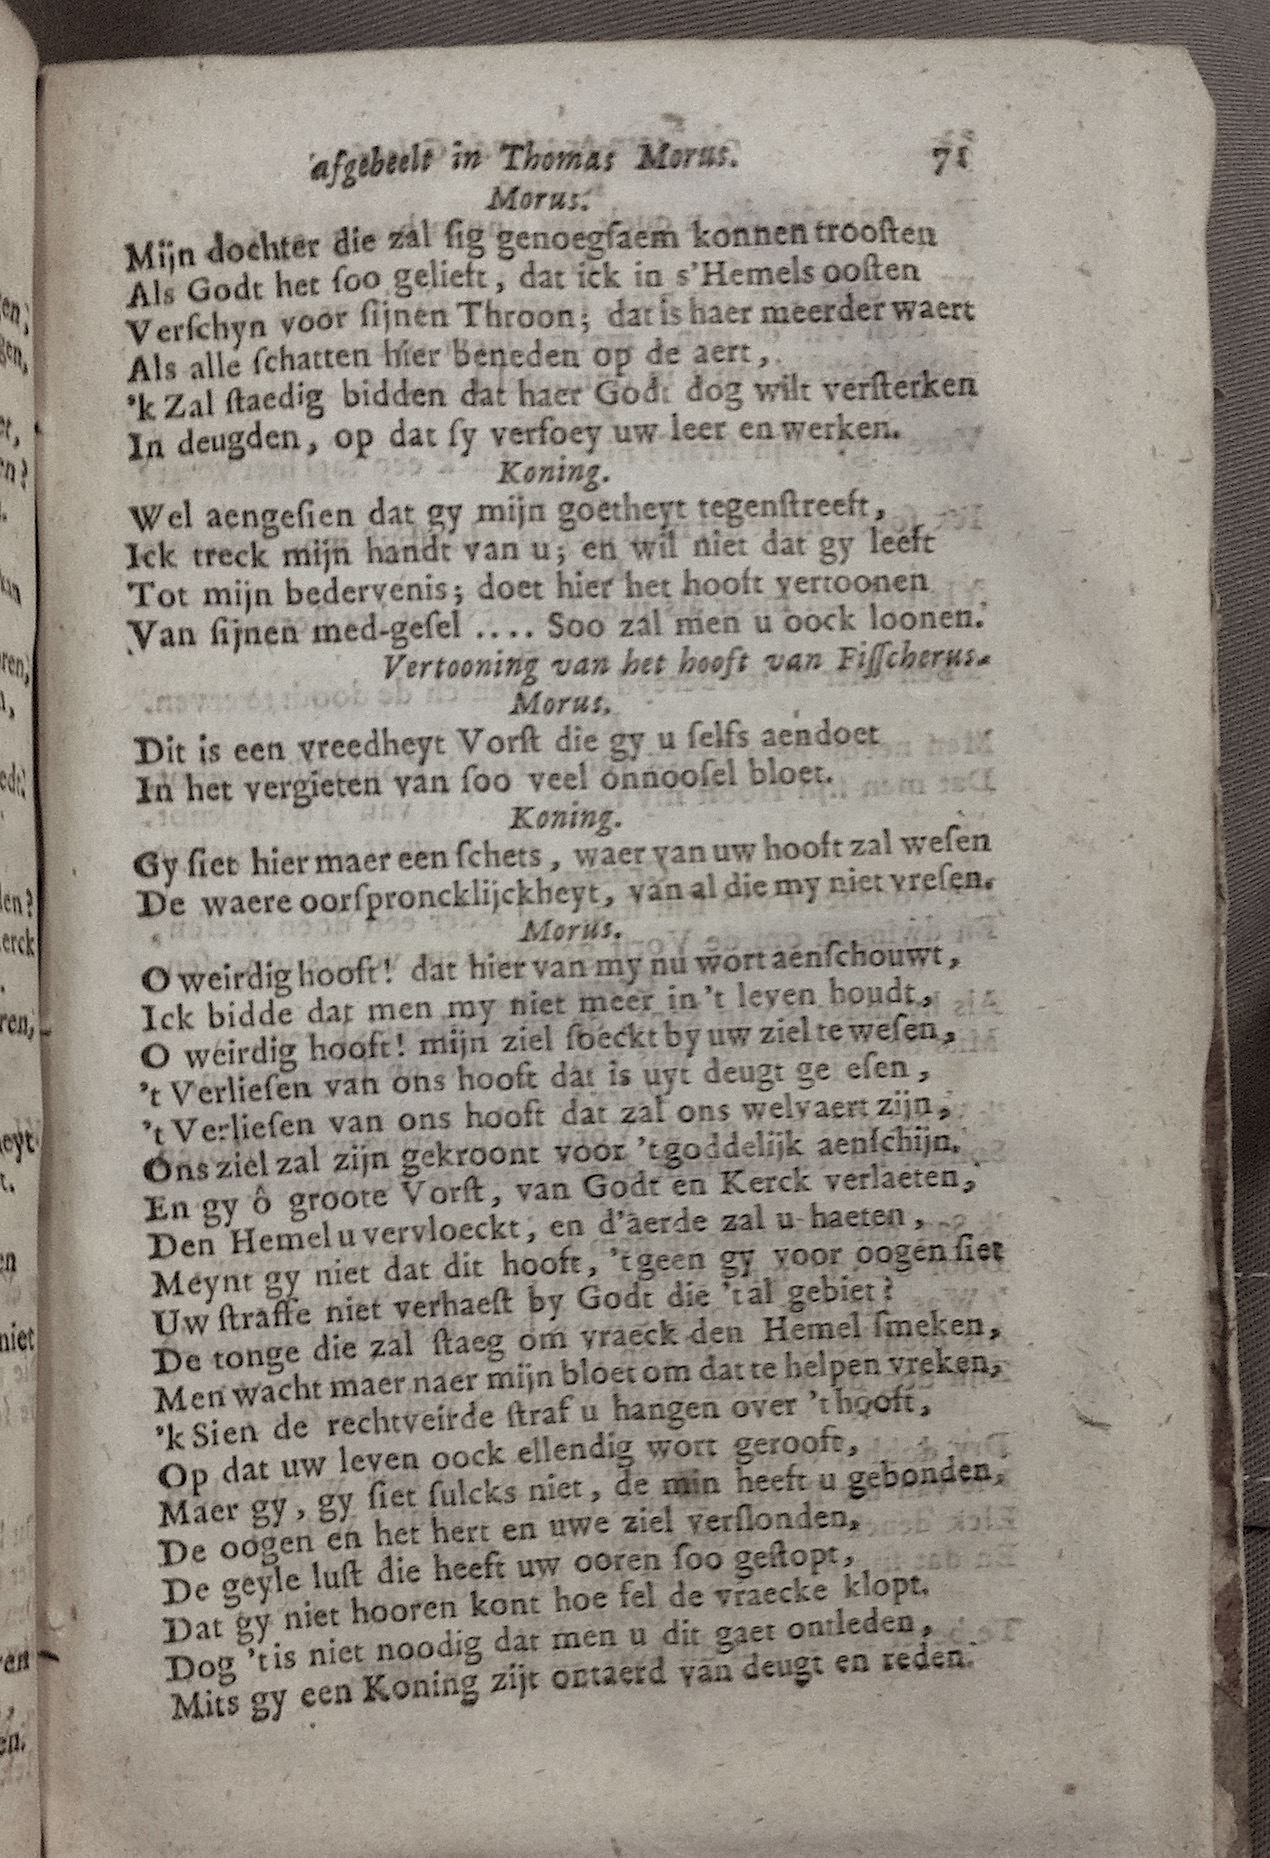 afgebeelt in Thomas Morus. 71
Morus.
Mijn dochter die zal ſig genoegſaem konnen trooſten
Als Godt het ſoo gelieft, dat ick in s'Hemels ooſten
Verſchyn voor ſijnen Throon; dat is haer meerder waert
Als alle ſchatten hier beneden op de aert,
'k Zal ſtaedig bidden dat haer Godt dog wilt verſterken
In deugden, op dat ſy verfoey uw leer en werken.
Koning.
Wel aengeſien dat gy mijn goetheyt tegenſtreeft,
Ick treck mijn handt van u; en wil niet dat gy leeft
Tot mijn bedervenis; doet hier het hooft vertoonen
Van ſijnen med-geſel .... Soo zal men u oock loonen.
Vertooning van het hooft van Fiſſcherus.
Morus.
Dit is een vreedheyt Vorſt die gy u ſelfs aendoet
In het vergieten van ſoo veel onnooſel bloet.
Koning.
Gy ſiet hier maer een ſchets, waer van uw hooft zal weſen
De waere oorſproncklijckheyt, van al die my niet vreſen.
Morus.
O weirdig hooft! dat hier van my nu wort aenſchouwt,
Ick bidde dat men my niet meer in 't leven houdt,
O weirdig hooft! mijn ziel ſoeckt by uw ziel te weſen,
't Verlieſen van ons hooft dat is uyt deugt ge eſen,
't Verlieſen van ons hooft dat zal ons welvaert zijn,
Ons ziel zal zijn gekroont voor 't goddelijk aenſchijn.
En gy ô groote Vorſt, van Godt en Kerck verlaeten,
Den Hemel u vervloeckt, en d'aerde zal u haeten,
Meynt gy niet dat dit hooft, 't geen gy voor oogen ſiet
Uw ſtraffe niet verhaeſt by Godt die 't al gebiet?
De tonge die zal ſtaeg om vraeck den Hemel ſmeken,
Men wacht maer naer mijn bloet om dat te helpen vreken,
'k Sien de rechtveirde ſtraf u hangen over 't hooft,
Op dat uw leven oock ellendig wort gerooft,
Maer gy, gy ſiet ſulcks niet, de min heeft u gebonden,
De oogen en het hert en uwe ziel verſlonden,
De geyle luſt die heeft uw ooren ſoo geſtopt,
Dat gy niet hooren kont hoe fel de vraecke klopt.
Dog 't is niet noodig dat men u dit gaet ontleden,
Mits gy een Koning zijt ontaerd van deugt en reden.